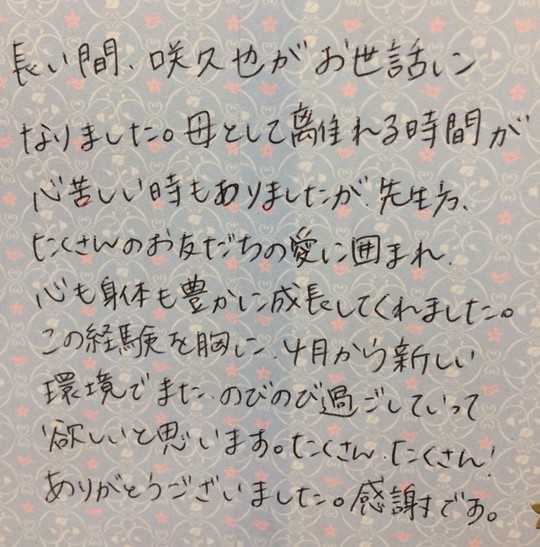 長い間、咲久也がお世話に
なりました。母として離れる時間が
心苦しい時もありましたが、先生方、
たくさんのお友だちの愛に囲まれ、
心も身体も豊かに成長してくれました。
この経験を胸に、4月から新しい
環境でまた、のびのび過ごしていって
欲しいと思います。たくさん、たくさん!
ありがとうございました。感謝です。